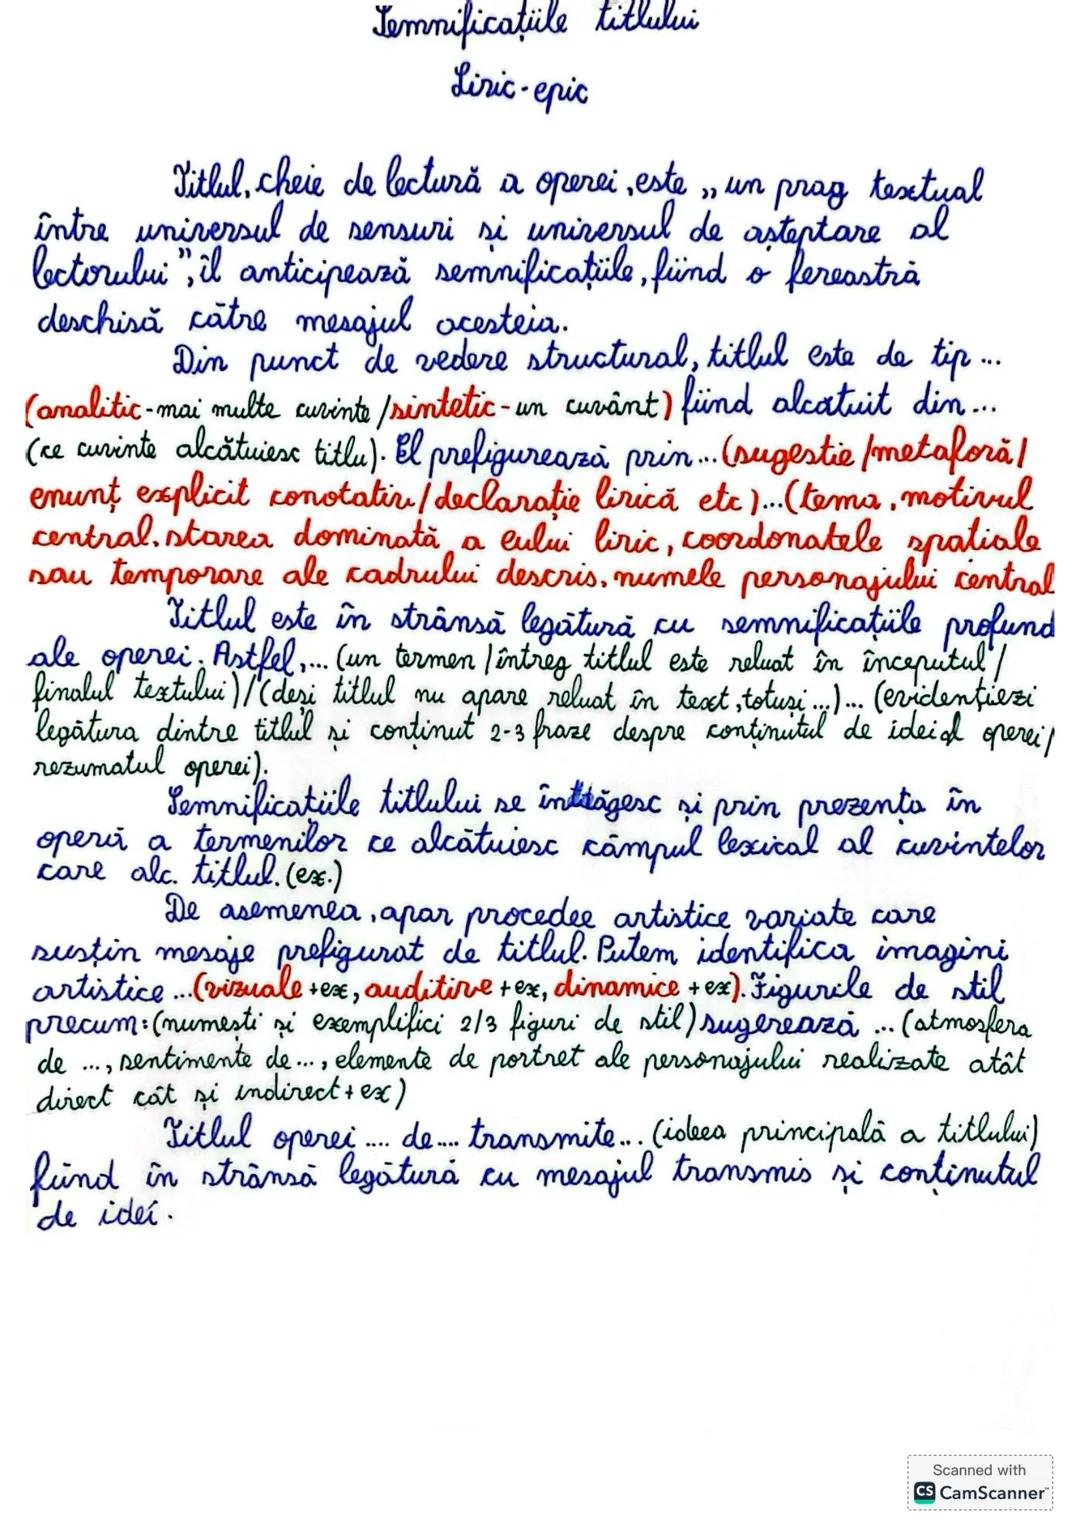 Semnificațiile titlului
Liric-epic
Titlul, cheie de lectură a operei, este „un prag textual
între universul de sensuri și universul de așteptare al
lectorului”, îl anticipează semnificațiile, fiind o fereastră
deschisă către mesajul acesteia.
Din punct de vedere structural, titlul este de tip ...
(analitic-mai multe cuvinte/sintetic-un cuvânt) fiind alcătuit din...
(ce cuvinte alcătuiesc titlu). El prefigurează prin...(sugestie/metaforă/
enunț explicit conotativ/declarație lirică etc)...(tema, motivul
central, starea dominată a eului liric, coordonatele spațiale
sau temporare ale cadrului descris, numele personajului central
Titlul este în strânsă legătură cu semnificațiile profund
ale operei. Astfel,... (un termen/întreg titlul este reluat în începutul/
finalul textului)/(deși titlul nu apare reluat în text, totuși...)... (evidențiezi
legătura dintre titlul și conținut 2-3 fraze despre conținutul de idei al operei/
rezumatul operei).
Semnificațiile titlului se întrăgesc și prin prezența în
operă a termenilor ce alcătuiesc câmpul lexical al cuvintelor
care alc. titlul. (ex.)
De asemenea, apar procedee artistice variate care
susțin mesaje prefigurat de titlul. Putem identifica imagini
artistice ...(vizuale +ex, auditive +ex, dinamice +ex). Figurile de stil
precum: (numești și exemplifici 2/3 figuri de stil) sugerează ... (atmosfera
de ..., sentimente de ..., elemente de portret ale personajului realizate atât
direct cât și indirect + ex)
Titlul operei .... de.... transmite... (ideea principală a titlului)
fiind în strânsă legătură cu mesajul transmis și conținutul
de idei.
Scanned with
CS CamScanner